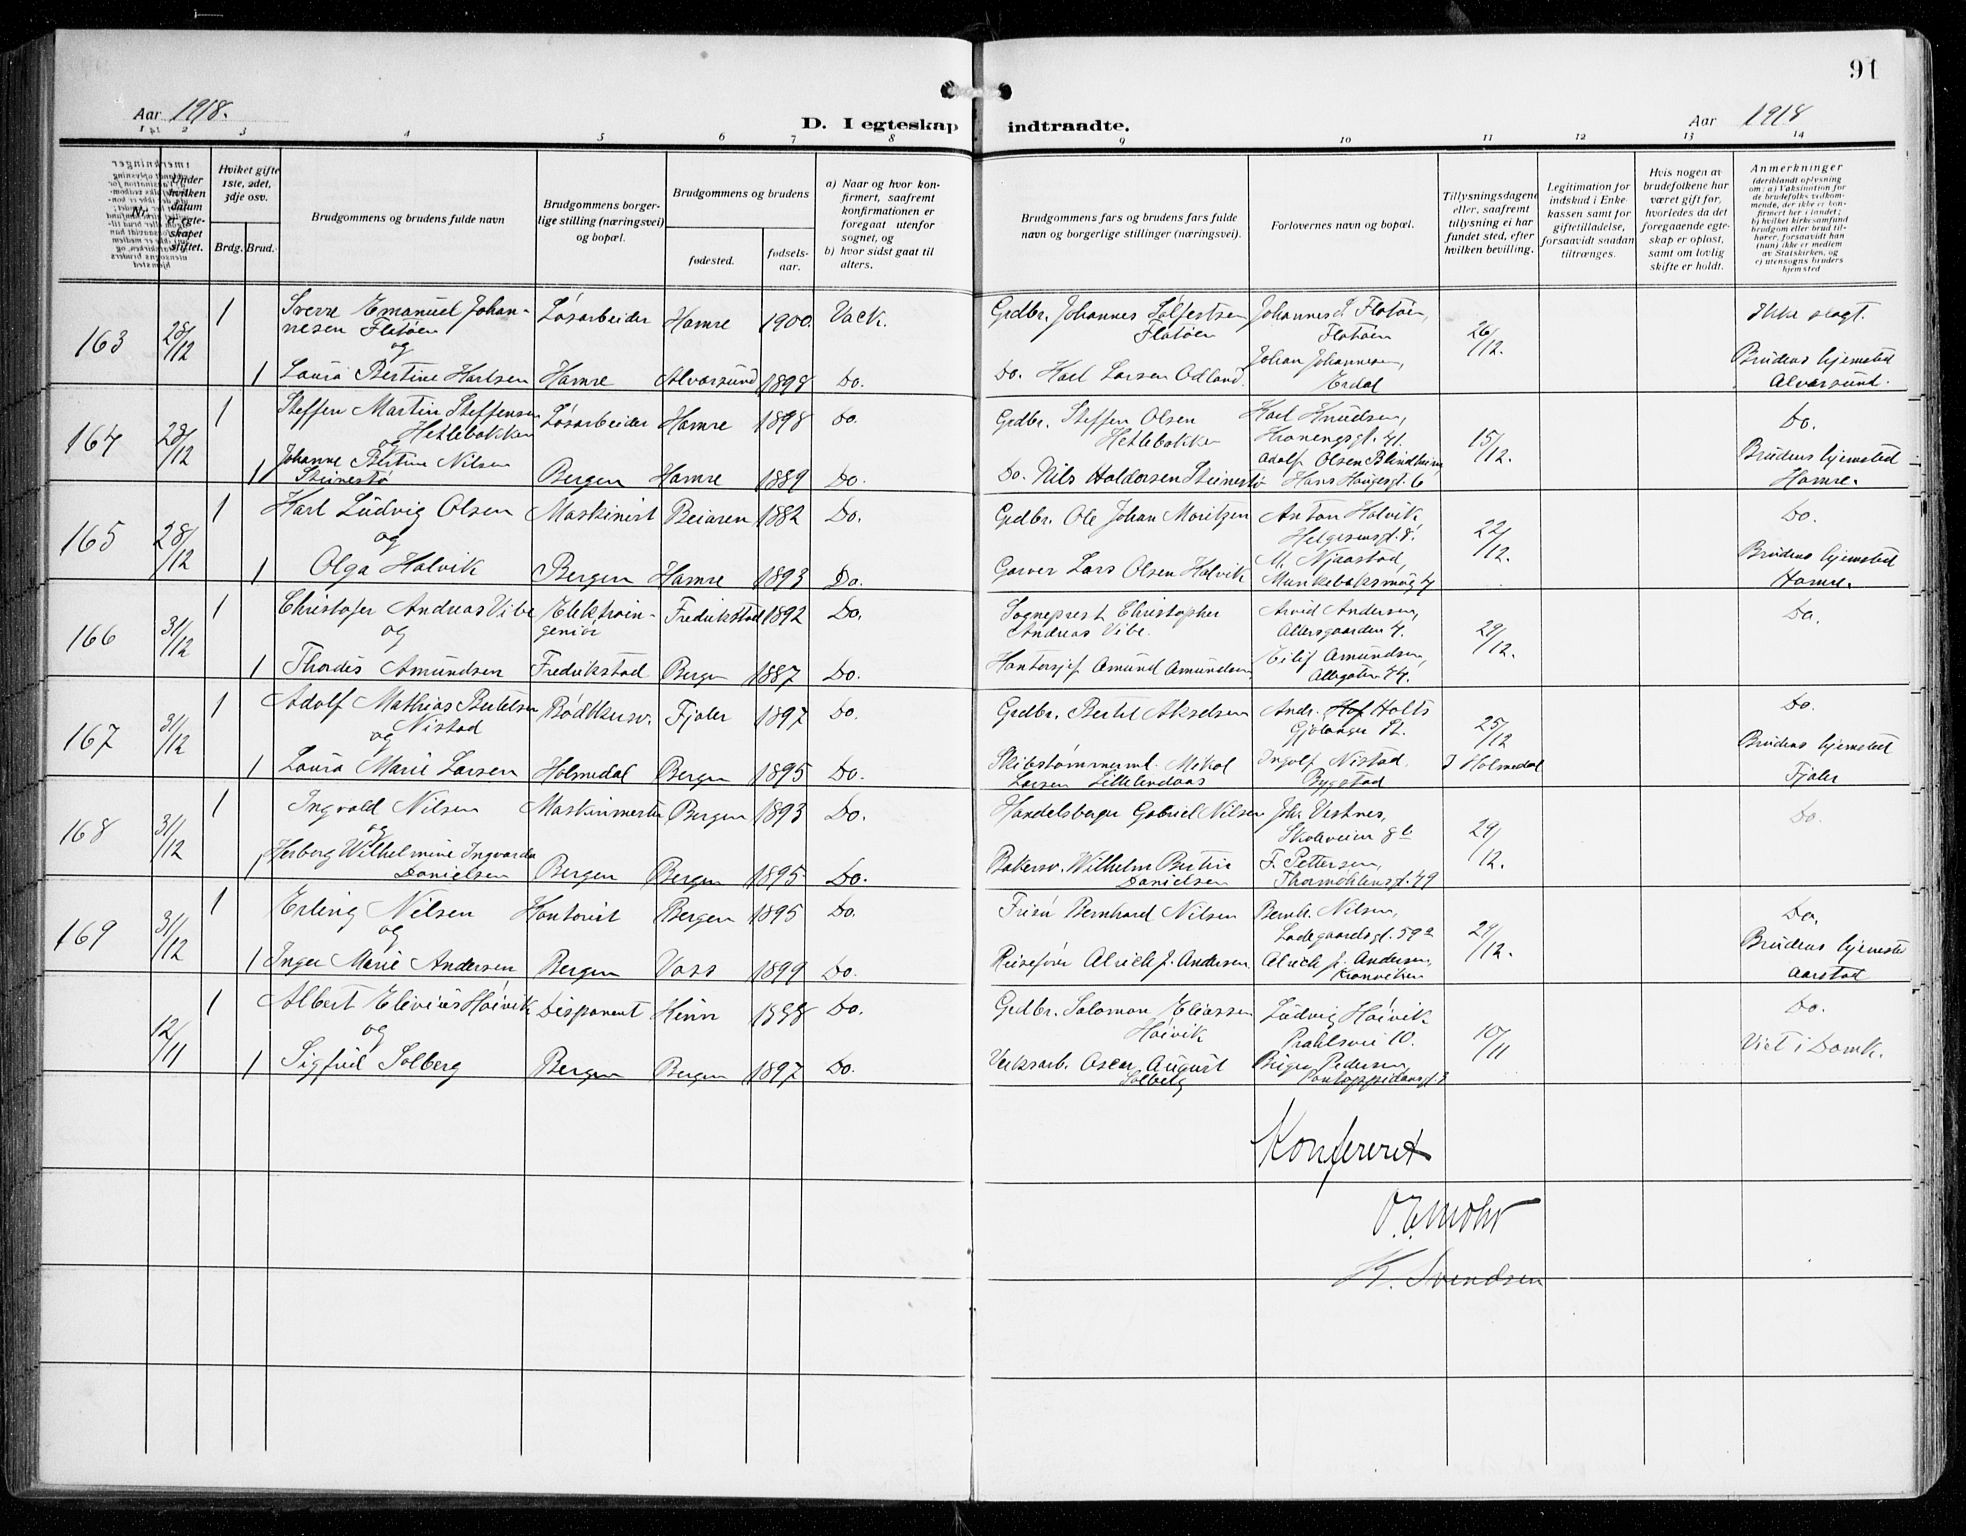 91
Aar 1918.
D. I egteskap indtraadte.
Aar 1918
1 2 3 4 5 6 7 8 9 10 11 12 13 14
Nr.
Under hvilken datum er egteskapet stiftet.
Hvilket gifte 1ste, 2det, 3dje osv.
Brdg. Brud.
Brudgommens og brudens fulde navn
Brudgommens borgerlige stilling (næringsvei) og bopæl.
Brudgommens og brudens
fødested.
fødselsaar.
a) Naar og hvor konfirmert, saafremt konfirmationen er foregaat utenfor sognet, og
b) hvor sidst gaat til alters.
Brudgommens fars og brudens fars fulde navn og borgerlige stillinger (næringsvei).
Forlovernes navn og bopæl.
Tillysningsdagene eller, saafremt tillysning ei har fundet sted, efter hvilken bevilling.
Legitimation for indskud i Enkekassen samt for giftetilladelse, forsaavidt saadan tiltrænges.
Hvis nogen av brudefolkene har været gift før, hvorledes da det foregaaende egteskap er opløst, samt om lovlig skifte er holdt.
Anmerkninger (deriblandt oplysning om: a) Vaksination for de brudefolks vedkommende, der ikke er konfirmert her i landet; b) hvilket kirkesamfund brudgom eller brud tilhører, forsaavidt han (hun) ikke er medlem av Statskirken, og c) utensogns bruders hjemsted
163 28/12 1 Sverre Emanuel Johannesen Flatøen Løsarbeider Hamre 1900. Vack. Grdbr. Johannes Sølfestsen Flatøen Johannes S. Flatøen, Flatøen 26/12. Ikke slegt.
og
1 Laura Bertine Karlsen Hamre Alversund 1898 Do. Do. Karl Larsen Odland. Johan Johannesen, Erdal Brudens hjemsted Alversund.
164 28/12 1 Steffen Martin Steffensen Hetlebakken Løsarbeider Hamre 1898 Do. Grdbr. Steffen Olsen Hetlebakken Karl Knudsen, Kroningsgt. 41. 15/12. Do.
og
1 Johanne Bertine Nilsen Steinestø Bergen Hamre 1889 Do. Do. Nils Haldorsen Steinestø Adolf Olsen Blindheim Hans Haugesgt. 6 Brudens hjemsted Hamre.
165 28/12 1 Karl Ludvig Olsen Maskinist Beiaren 1882 Do. Grdbr. Ole Johan Moritzen Anton Halvik, Helgesensgt. 8. 22/12. Do.
og
1 Olga Halvik Bergen Hamre 1893 Do. Garver Lars Olsen Halvik M. Njaastad, Munkebaksmug 4 Brudens hjemsted Hamre.
166 31/12 1 Christofer Andreas Vibe Elektroingeniør Fredrikstad 1892 Do. Sogneprest Christopher Andreas Vibe. Arvid Andersen, 4. 29/12. Do.
og
1 Thordis Amundsen Fredrikstad Bergen 1887 Do. Kontorsjef Amund Amundsen Eilif Amundsen, Allegaten 44.
167 31/12 1 Adolf Mathias Bertelsen Nistad Bødkersv. Fjaler 1897 Do. Grdbr. Bertel Akselsen Andr. Holts Gjølanger Pt. 25/12 Do.
og
1 Laura Marie Larsen Holmedal Bergen 1895 Do. Skibstømmerml. Mikal Larsen Lillelindaas Ingolf Nistad. Bygstad I Holmedal Brudens hjemsted Fjaler
168 31/12 1 Ingvald Nilsen Maskinmester Bergen 1893 Do. Handelsborger Gabriel Nilsen Joh. Vestnes, Skoleveien 8b 29/12. Do.
og
1 Herborg Wilhelmine Ingvarda Danielsen Bergen Bergen 1895 Do. Bakersv. Wilhelm Danielsen F. Pettersen, Thormøhlensgt. 49
169 31/12 1 Erling Nilsen Kontorist Bergen 1895 Do. Frisør Bernhard Nilsen Bernh. Nilsen, Ladegaardsgt. 59a 29/12. Do.
og
1 Inger Marie Andersen Bergen Voss 1899 Do. Reisefører Alrich J. Andersen. Alrich J. Andersen, Kronviken Brudens hjemsted Aarstad
12/11 1 Albert Elivius Høivik Disponent Kinn 1888 Do. Grdbr. Salomon Eliassen Høivik Ludvig Høivik Prahlsvei 10. 10/11 Do.
og
1 Sigfrid Solberg Bergen Bergen 1897 Do. Verksarb. Oscar August Solberg Pedersen Pontoppidansgt 3 Viet i Domk.
Konfereret
O. E. Mohr
K. Svendsen